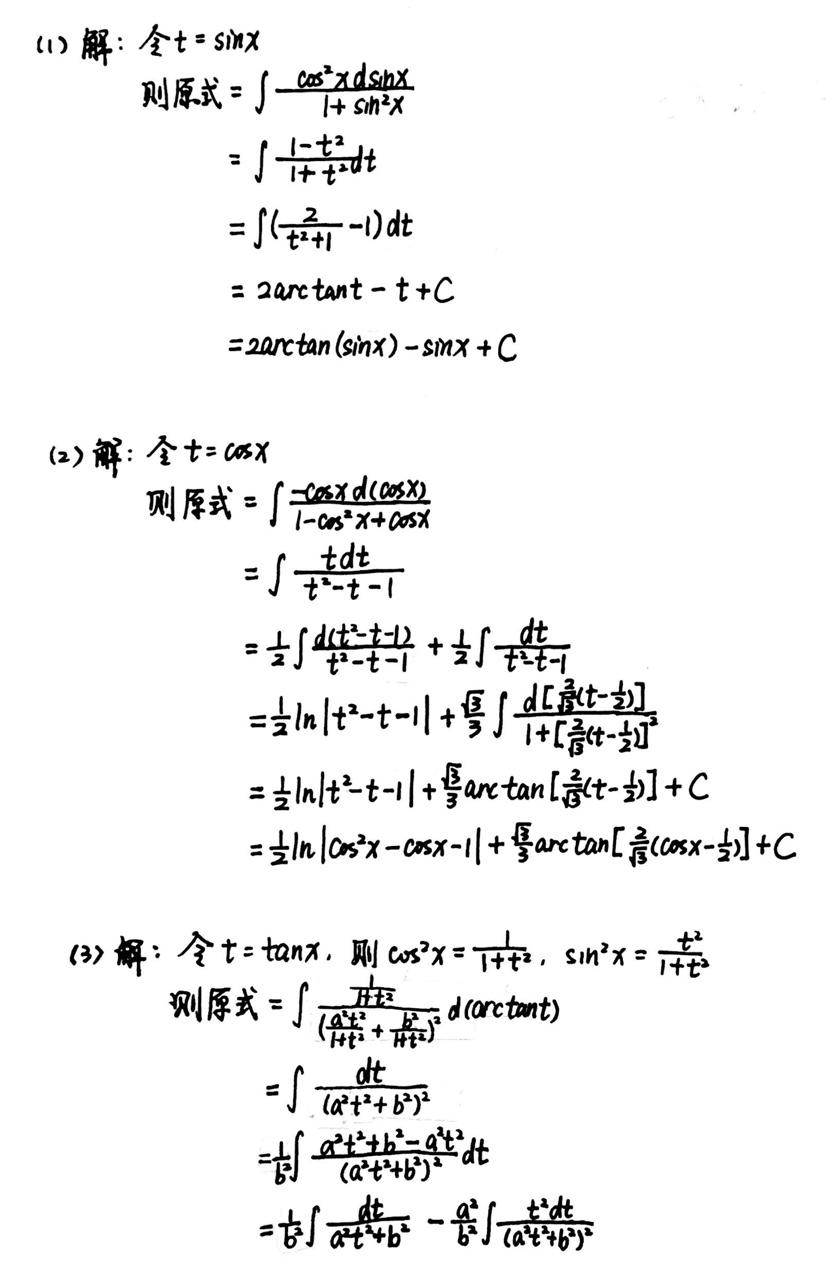 (1) 解: 令t=sinx
则原式=∫ cos²xdsinx/(1+sin²x)
=∫ (1-t²)/(1+t²) dt
=∫(2/(t²+1) -1)dt
=2arctant-t+C
=2arctan(sinx)-sinx+C
(2) 解: 令t=cosx
则原式=∫ -cosxd(cosx)/(1-cos²x+cosx)
=∫ tdt/(t²-t-1)
=1/2∫ d(t²-t-1)/(t²-t-1) + 1/2∫ dt/(t²-t-1)
=1/2 ln|t²-t-1| + √3/3 ∫ d[2/√3(t-1/2)]/(1+[2/√3(t-1/2)]²)
=1/2 ln|t²-t-1| + √3/3 arctan[2/√3(t-1/2)]+C
=1/2 ln|cos²x-cosx-1| + √3/3 arctan[2/√3(cosx-1/2)]+C
(3) 解: 令t=tanx, 则cos²x=1/(1+t²), sin²x=t²/(1+t²)
则原式=∫ (1/(1+t²))/(a²t²/(1+t²) + b²/(1+t²))² d(arctant)
=∫ dt/(a²t²+b²)²
=1/b² ∫ (a²t²+b²-a²t²)/(a²t²+b²)² dt
=1/b² ∫ dt/(a²t²+b²) - a²/b² ∫ t²dt/(a²t²+b²)²